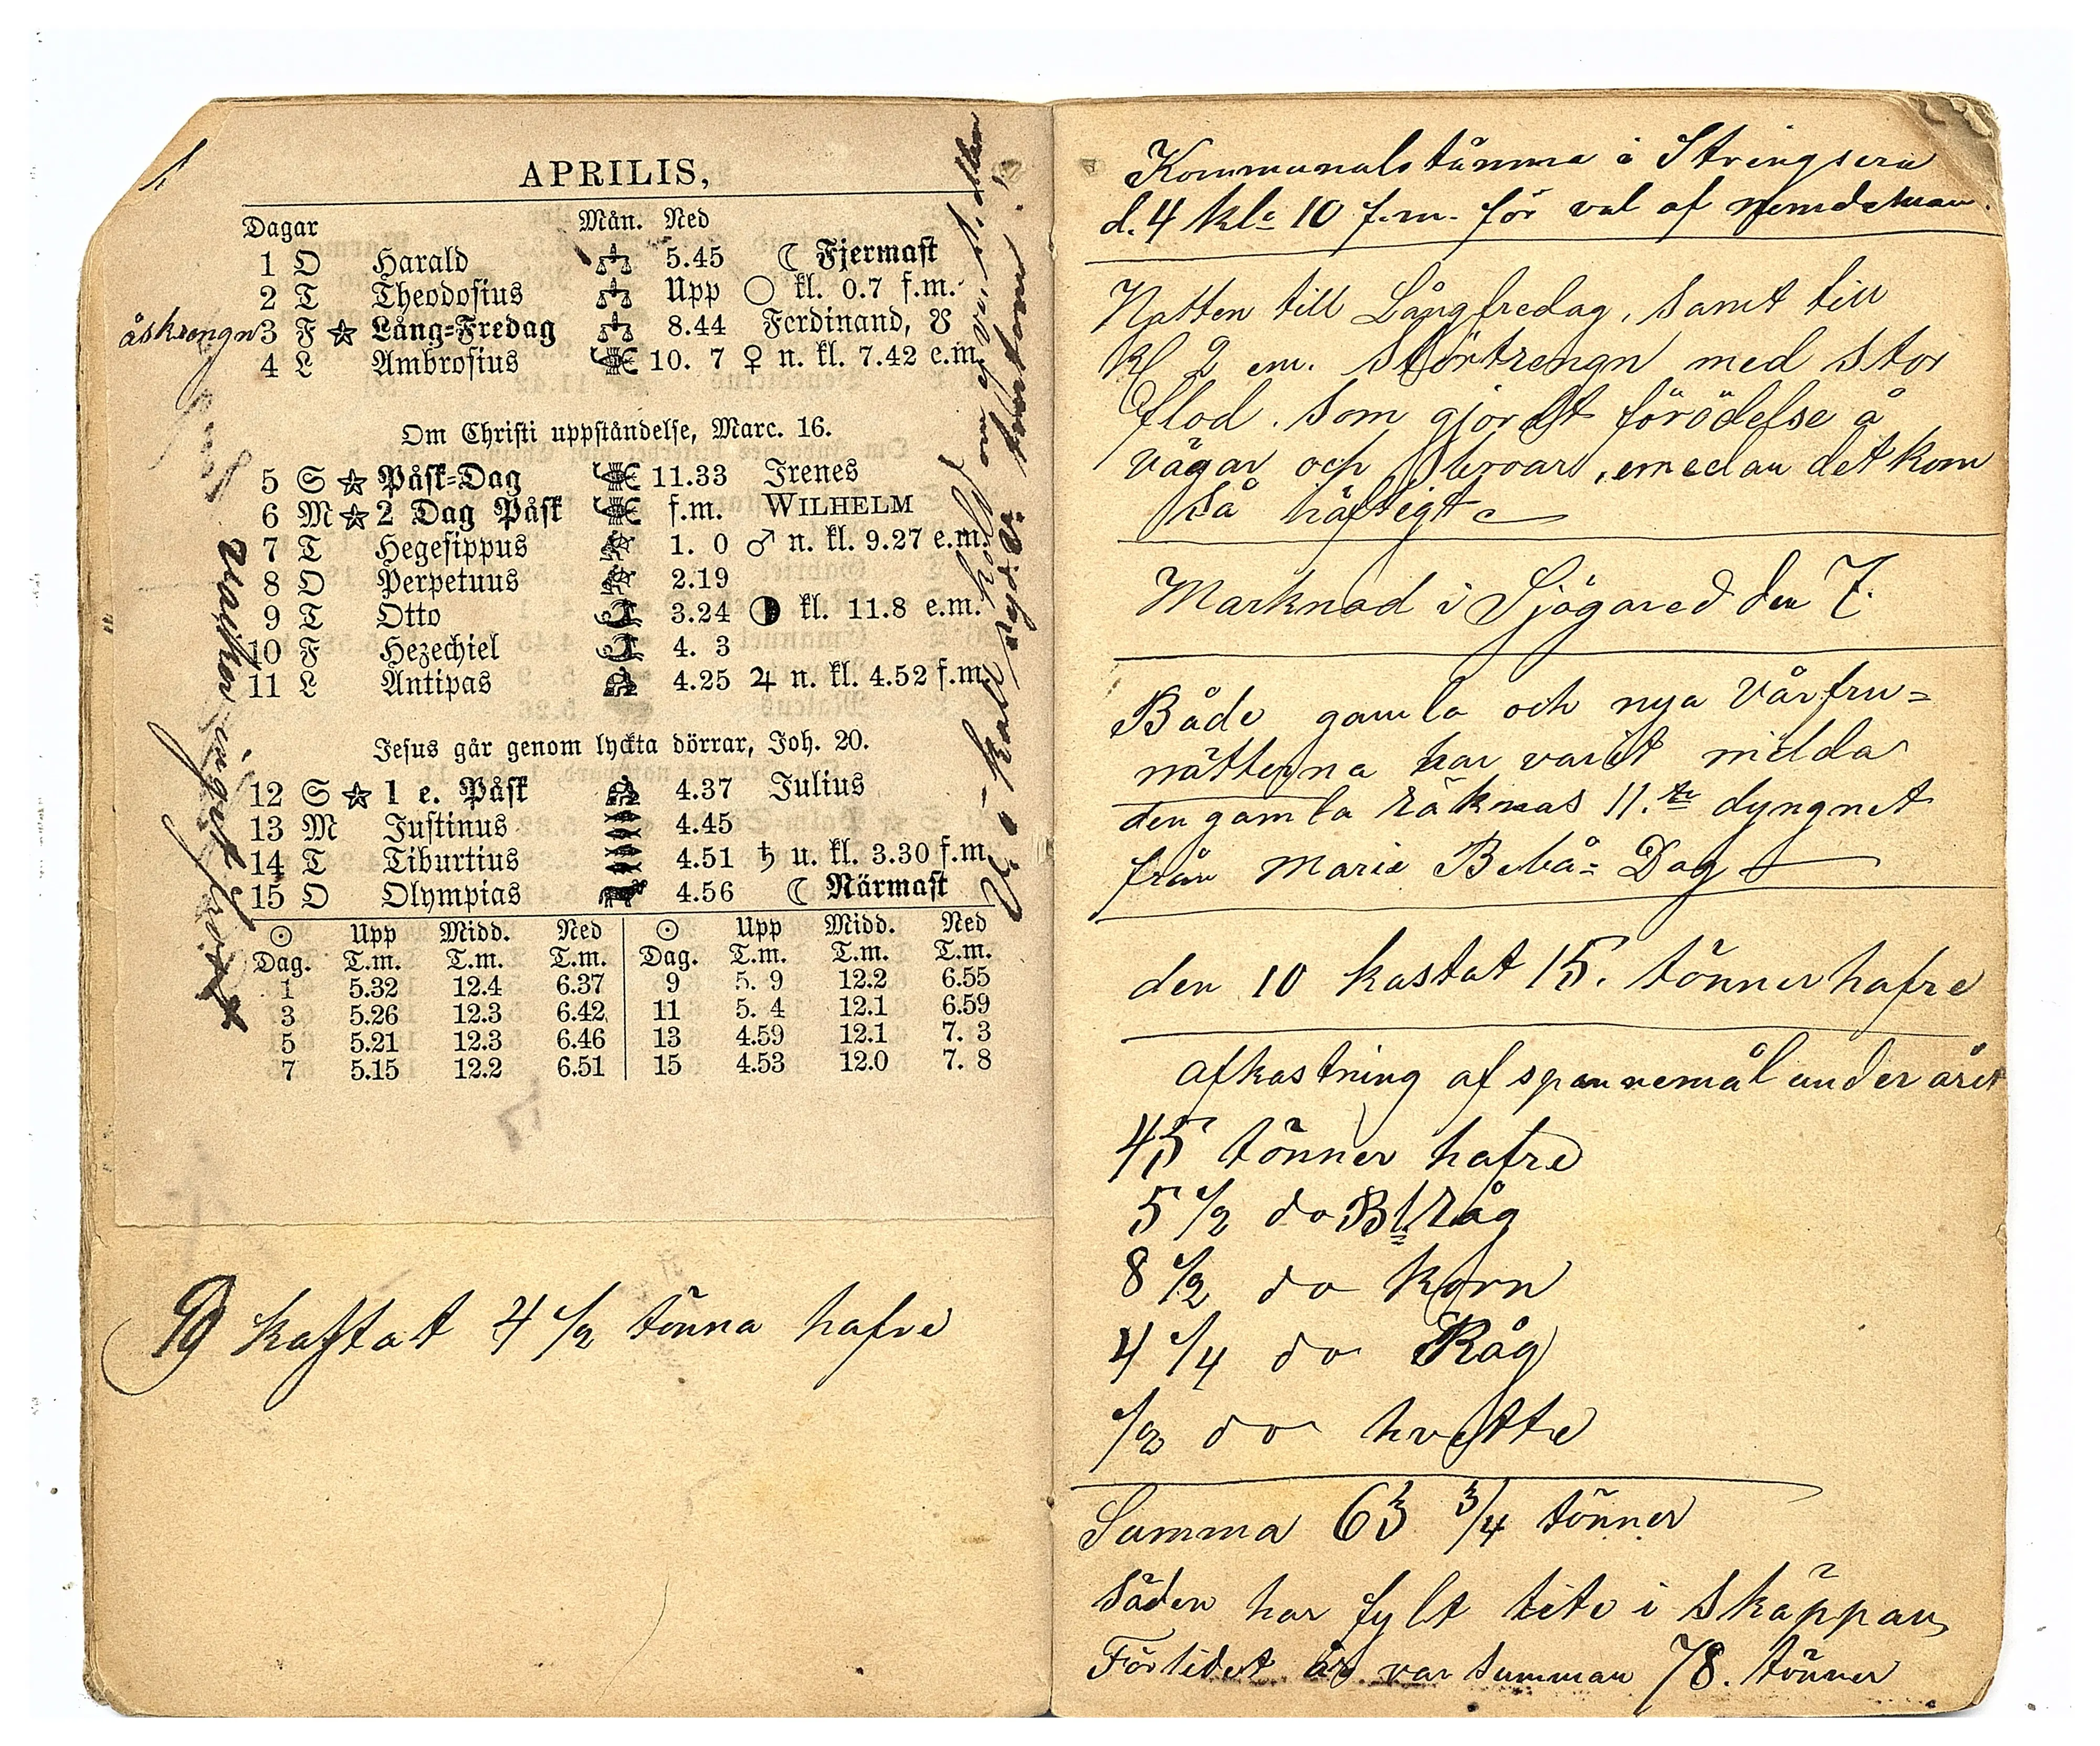 APRILIS,
Dagar Mån. Ned
1 O Harald 5.45 ☾ Fjermast
2 T Theodosius Upp ○ kl. 0.7 f.m.
åskrengn 3 F ☆ Lång=Fredag 8.44 Ferdinand, ☋
4 L Ambrosius 10. 7 ♀ n. kl. 7.42 e.m.
Om Christi uppståndelse, Marc. 16.
5 S ☆ Påsk=Dag 11.33 Irenes
6 M ☆ 2 Dag Påsk f.m. WILHELM
7 T Hegesippus 1. 0 ♂ n. kl. 9.27 e.m.
8 O Perpetuus 2.19
9 T Otto 3.24 ◑ kl. 11.8 e.m.
10 F Hezechiel 4. 3
11 L Antipas 4.25 ♃ n. kl. 4.52 f.m.
Jesus går genom lyckta dörrar, Joh. 20.
12 S ☆ 1 e. Påsk 4.37 Julius
13 M Justinus 4.45
14 T Tiburtius 4.51 ♄ u. kl. 3.30 f.m.
15 O Olympias 4.56 ☾ Närmast
☉ Upp Midd. Ned ☉ Upp Midd. Ned
Dag. T.m. T.m. T.m. Dag. T.m. T.m. T.m.
1 5.32 12.4 6.37 9 5. 9 12.2 6.55
3 5.26 12.3 6.42 11 5. 4 12.1 6.59
5 5.21 12.3 6.46 13 4.59 12.1 7. 3
7 5.15 12.2 6.51 15 4.53 12.0 7. 8
kastat 4 1/2 tönna hafre
Kommunalstämma i Stringsera
d. 4 kl: 10 f.m. för val af nemdeman.
Natten till Långfredag, samt till
Kl 2 em. Störtrengn med stor
flod. som gjordt förödelse å
vägar och broar, emedan det kom
så häftigt
Marknad i Sjögared den 7.
Både gamla och nya Vårfru=
nätterna har varit milda
den gamla räknas 11.te dyngnet
från Marie Bebå= Dag
den 10 kastat 15. tönner hafre
afkastning af spannemål under året
45 tönner hafre
5 1/2 do Bl Råg
8 1/2 do korn
4 1/4 do Råg
1/2 do hvette
Summa 63 3/4 tönner
Säden har fylt lite i skäppan
Förlidet år var summan 78. tönner